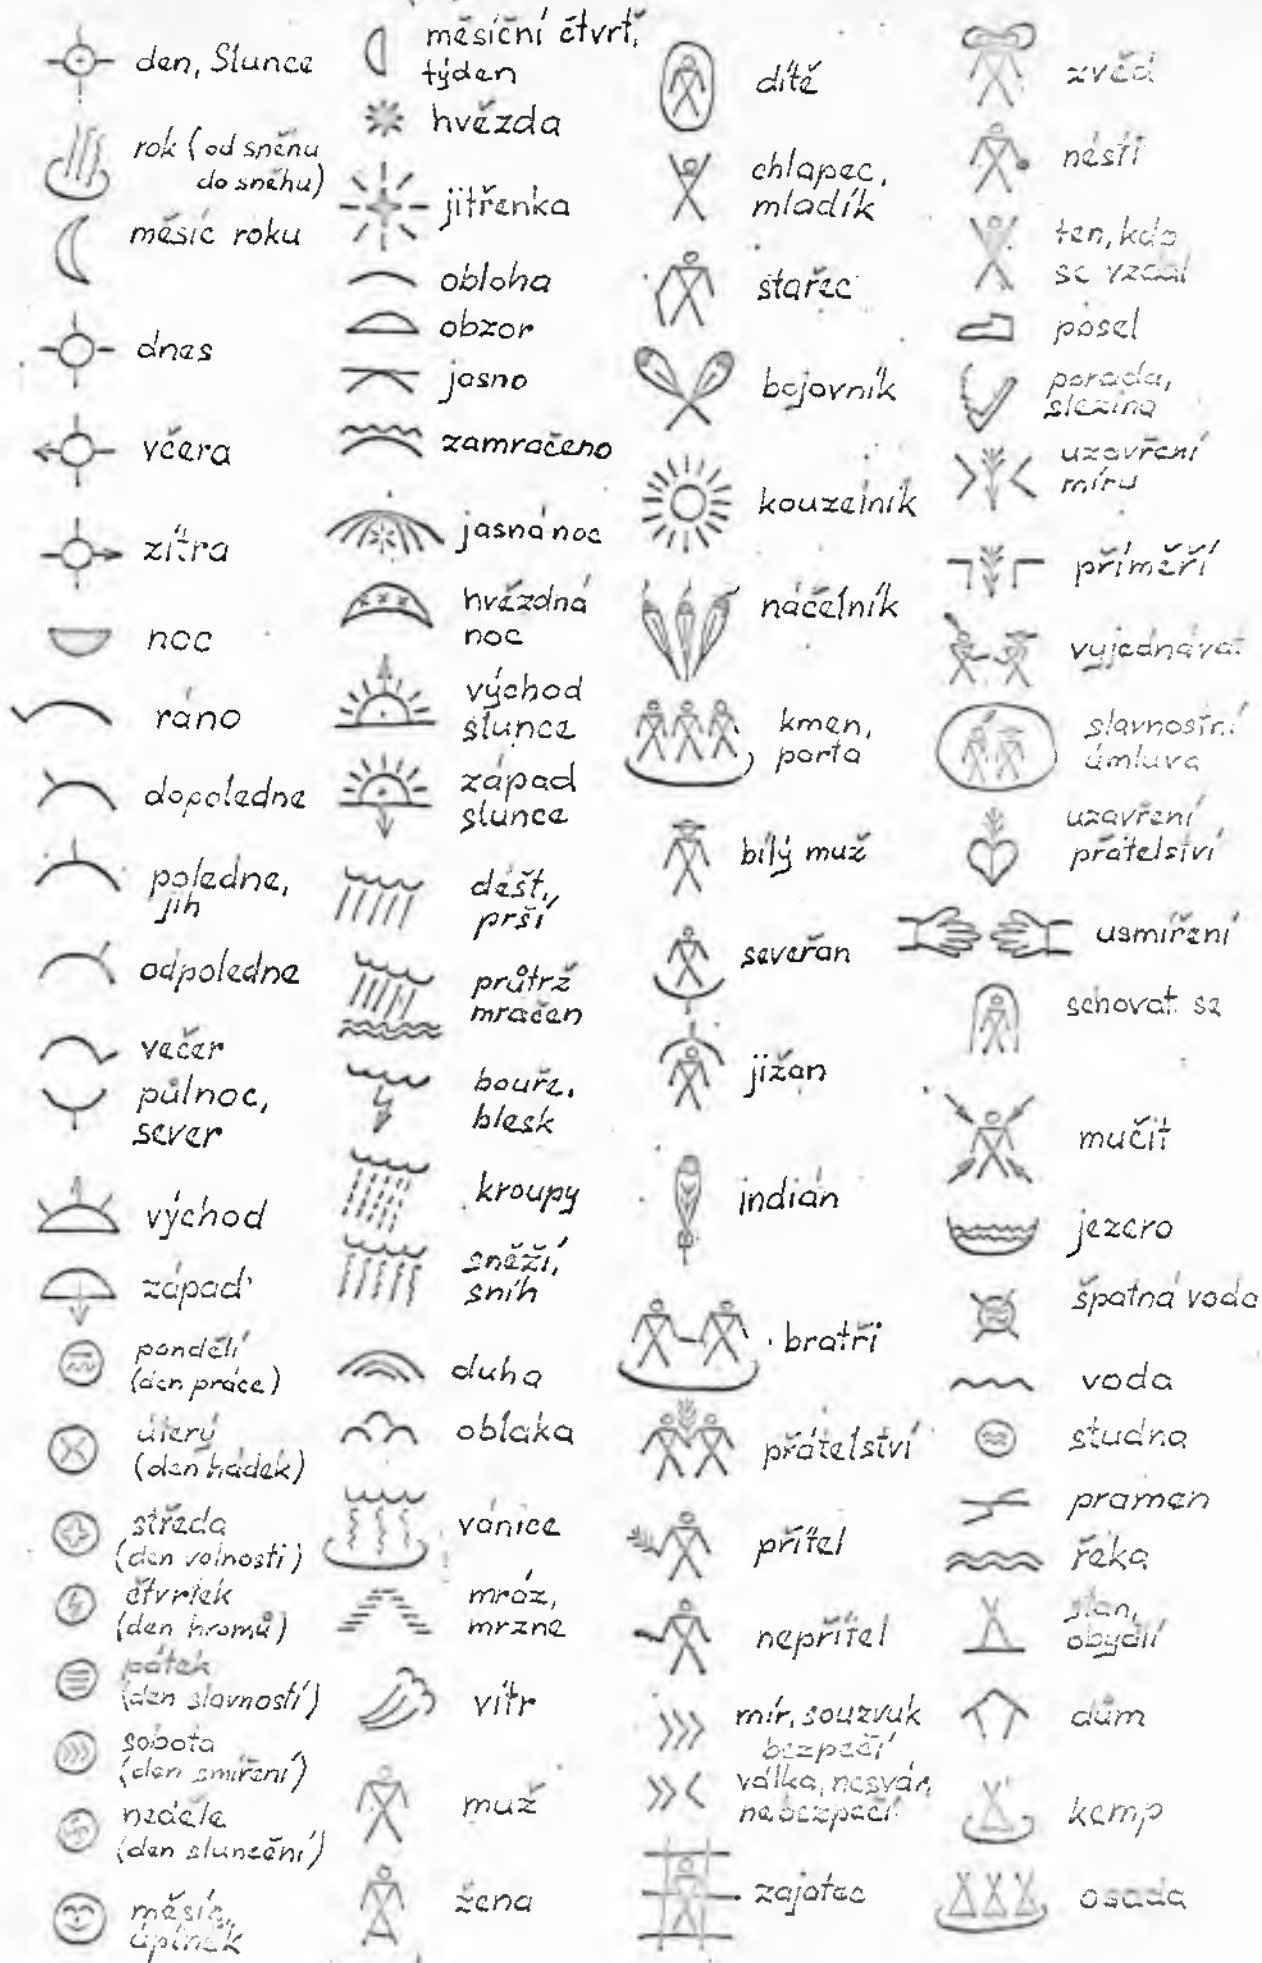 den, Slunce
rok (od sněhu
do sněhu)
měsíc roku
dnes
včera
zítra
noc
ráno
dopoledne
poledne,
jih
odpoledne
večer
půlnoc,
sever
východ
západ
pondělí
(den práce)
úterý
(den hádek)
středa
(den volnosti)
čtvrtek
(den hromů)
pátek
(den slavností)
sobota
(den smíření)
neděle
(den sluneční)
měsíc,
úplněk
měsíční čtvrť,
týden
hvězda
jitřenka
obloha
obzor
jasno
zamračeno
jasná noc
hvězdná
noc
východ
slunce
západ
slunce
déšť,
prší
průtrž
mračen
bouře,
blesk
kroupy
sněží,
sníh
duha
oblaka
vánice
mráz,
mrzne
vítr
muž
žena
dítě
chlapec,
mladík
stařec
bojovník
kouzelník
náčelník
kmen,
parta
bílý muž
seveřan
jižan
indián
bratři
přátelství
přítel
nepřítel
mír, souzvuk
bezpečí
válka, nesvár,
nebezpečí
zajatec
zvěd
nésti
ten, kdo
se vzdal
posel
porada,
slezina
uzavření
míru
příměří
vyjednávat
slavnostní
úmluva
uzavření
přátelství
usmíření
schovat se
mučit
jezero
špatná voda
voda
studna
pramen
řeka
stan,
obydlí
dům
kemp
osada